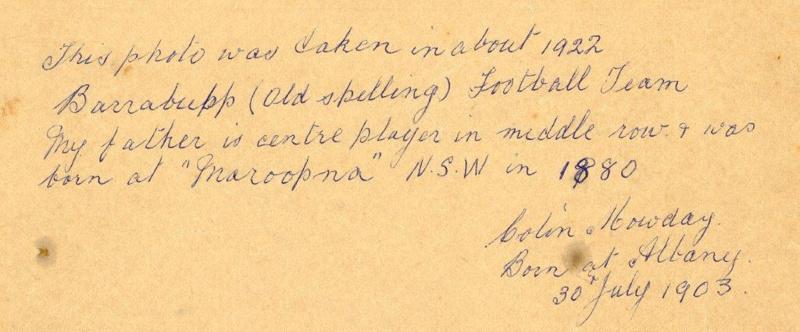 This photo was taken in about 1922
Barrabupp (old spelling) Football Team
My father is centre player in middle row & was
born at "Maroopna" N.S.W in 1880
Colin Mowday.
Born at Albany.
30th July 1903.